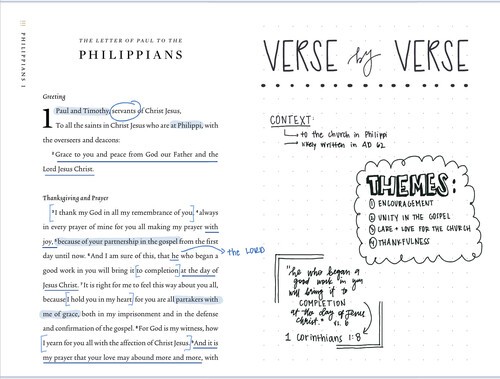 PHILIPPIANS 1
THE LETTER OF PAUL TO THE
PHILIPPIANS
Greeting
1 Paul and Timothy, servants of Christ Jesus,
To all the saints in Christ Jesus who are at Philippi, with
the overseers and deacons:
2 Grace to you and peace from God our Father and the
Lord Jesus Christ.
Thanksgiving and Prayer
3 I thank my God in all my remembrance of you, 4 always
in every prayer of mine for you all making my prayer with
joy, 5 because of your partnership in the gospel from the first
day until now. 6 And I am sure of this, that he who began a
good work in you will bring it to completion at the day of
Jesus Christ. 7 It is right for me to feel this way about you all,
because I hold you in my heart, for you are all partakers with
me of grace, both in my imprisonment and in the defense
and confirmation of the gospel. 8 For God is my witness, how
I yearn for you all with the affection of Christ Jesus. 9 And it is
my prayer that your love may abound more and more, with
the LORD
VERSE by VERSE
CONTEXT:
to the church in Philippi
likely written in AD 62
THEMES:
1 ENCOURAGEMENT
2 UNITY IN THE GOSPEL
3 CARE + LOVE FOR THE CHURCH
4 THANKFULNESS
"he who began a
good work in you
will bring it to
COMPLETION
at the day of Jesus
Christ." vs. 6
1 Corinthians 1:8